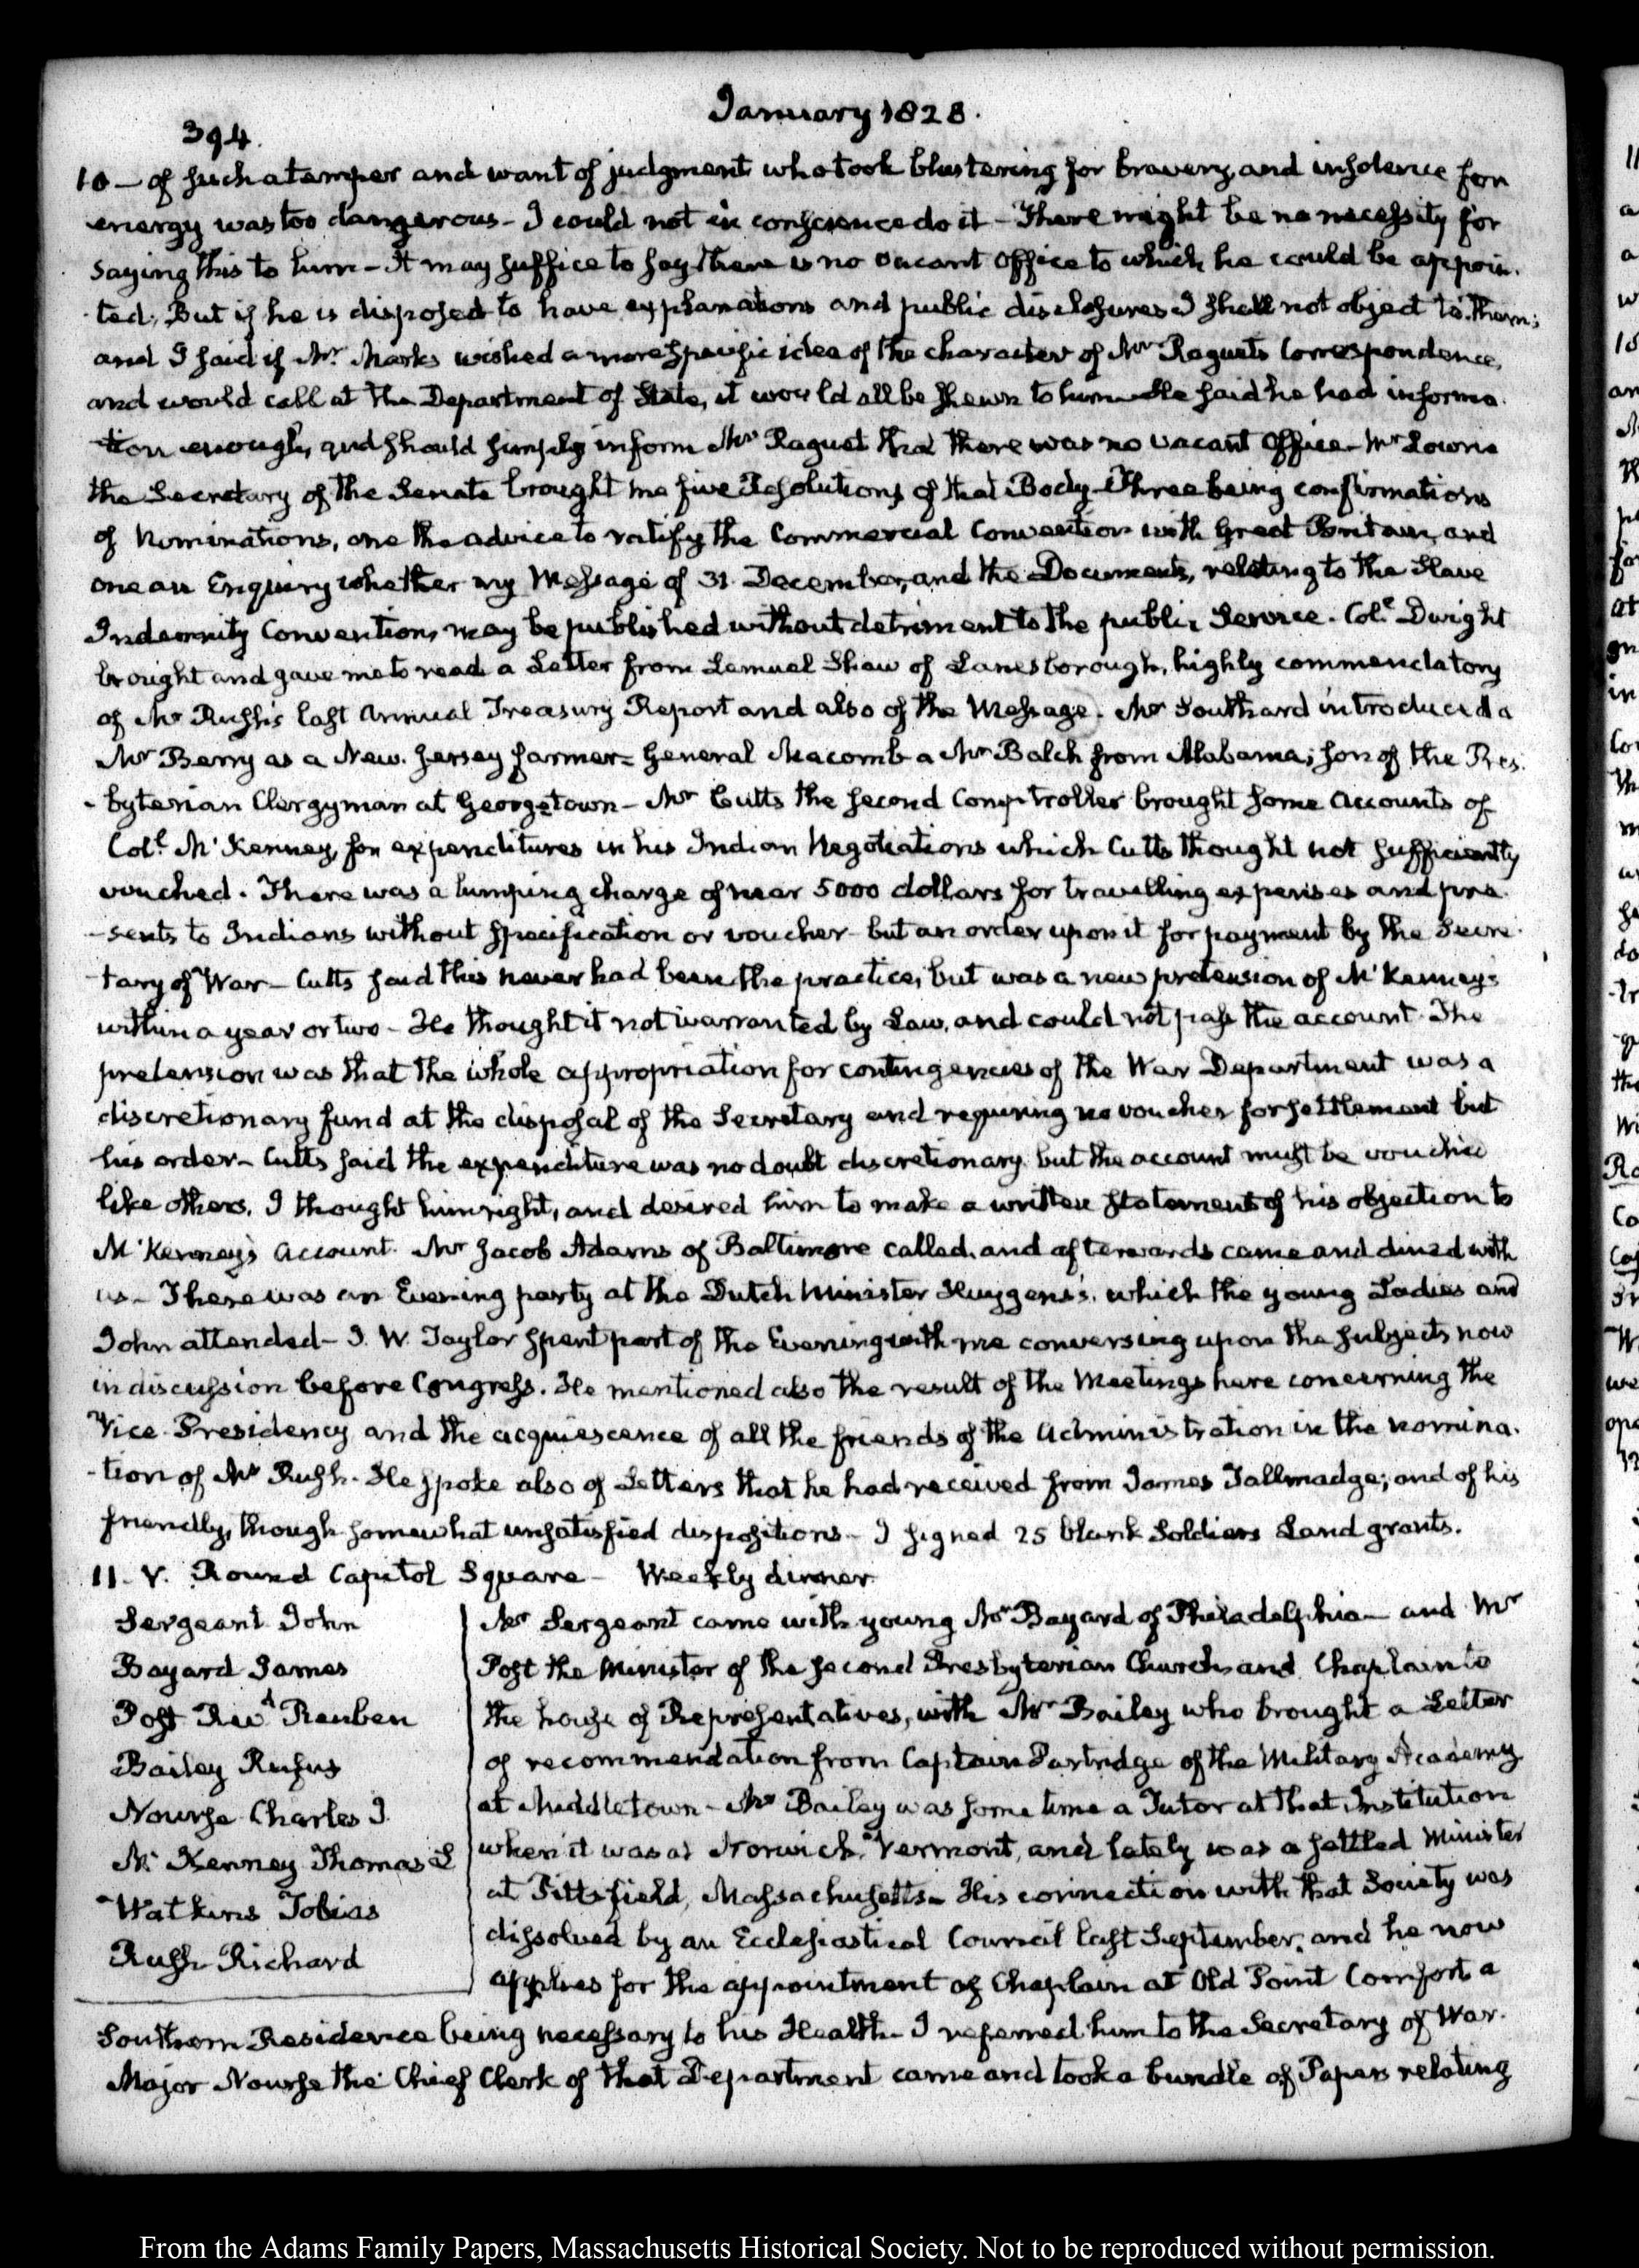 January 1828.
394.
10 — of such a temper and want of judgment who took blustering for bravery, and insolence for
energy was too dangerous - I could not in conscience do it - There might be no necessity for
saying this to him - It may suffice to say there is no vacant Office to which he could be appoin-
-ted. But if he is disposed to have explanations and public disclosures I shall not object to them;
and I said if Mr. Marks wished a more specific idea of the character of Mr Raguet's Correspondence,
and would call at the Department of State, it would all be shewn to him - He said he had informa-
-tion enough, and should simply inform Mr Raguet that there was no vacant Office - Mr Lowrie
the Secretary of the Senate brought me five Resolutions of that Body - Three being confirmations
of Nominations, one the advice to ratify the Commercial Convention with Great Britain, and
one an Enquiry whether my Message of 31 December, and the Documents, relating to the Slave
Indemnity Convention, may be published without detriment to the public Service. Col. Dwight
brought and gave me to read a Letter from Lemuel Shaw of Lanesborough, highly commendatory
of Mr Rush's last Annual Treasury Report and also of the Message. Mr Southard introduced a
Mr Berry as a New Jersey farmer - General Macomb a Mr Balch from Alabama; son of the Pres-
-byterian Clergyman at Georgetown - Mr Cutts the second Comptroller brought some Accounts of
Col. McKenney, for expenditures in his Indian Negotiations which Cutts thought not sufficiently
vouched. There was a lumping charge of near 5000 dollars for travelling expenses and pre-
-sents to Indians without specification or voucher - but an order upon it for payment by the Secre-
-tary of War - Cutts said this never had been the practice, but was a new pretension of McKenney's
within a year or two - He thought it not warranted by Law, and could not pass the account. The
pretension was that the whole appropriation for contingencies of the War Department was a
discretionary fund at the disposal of the Secretary and requiring no voucher for settlement but
his order - Cutts said the expenditure was no doubt discretionary but the account must be vouched
like others. I thought him right, and desired him to make a written statement of his objection to
McKenney's Account. Mr Jacob Adams of Baltimore called, and afterwards came and dined with
us - There was an Evening party at the Dutch Minister Huygens's, which the young Ladies and
John attended - J. W. Taylor spent part of the Evening with me conversing upon the subjects now
in discussion before Congress. He mentioned also the result of the Meetings here concerning the
Vice-Presidency and the acquiescence of all the friends of the Administration in the nomina-
-tion of Mr Rush. He spoke also of Letters that he had received from James Tallmadge; and of his
friendly, though somewhat unsatisfied dispositions - I signed 25 blank Soldiers Land grants.
11. V. Round Capitol Square - Weekly dinner.
Sergeant John
Bayard James
Post Revd Reuben
Bailey Rufus
Nourse Charles J.
McKenney Thomas L
Watkins Tobias
Rush Richard
Mr Sergeant came with young Mr Bayard of Philadelphia - and Mr
Post the Minister of the second Presbyterian Church, and Chaplain to
the house of Representatives, with Mr Bailey who brought a Letter
of recommendation from Captain Partridge of the Military Academy
at Middletown - Mr Bailey was some time a Tutor at that Institution
when it was at Norwich, Vermont, and lately was a settled Minister
at Pittsfield, Massachusetts - His connection with that Society was
dissolved by an Ecclesiastical Council last September; and he now
applies for the appointment of Chaplain at Old Point Comfort a
Southern Residence being necessary to his Health - I referred him to the Secretary of War.
Major Nourse the Chief Clerk of that Department came and took a bundle of Papers relating
From the Adams Family Papers, Massachusetts Historical Society. Not to be reproduced without permission.